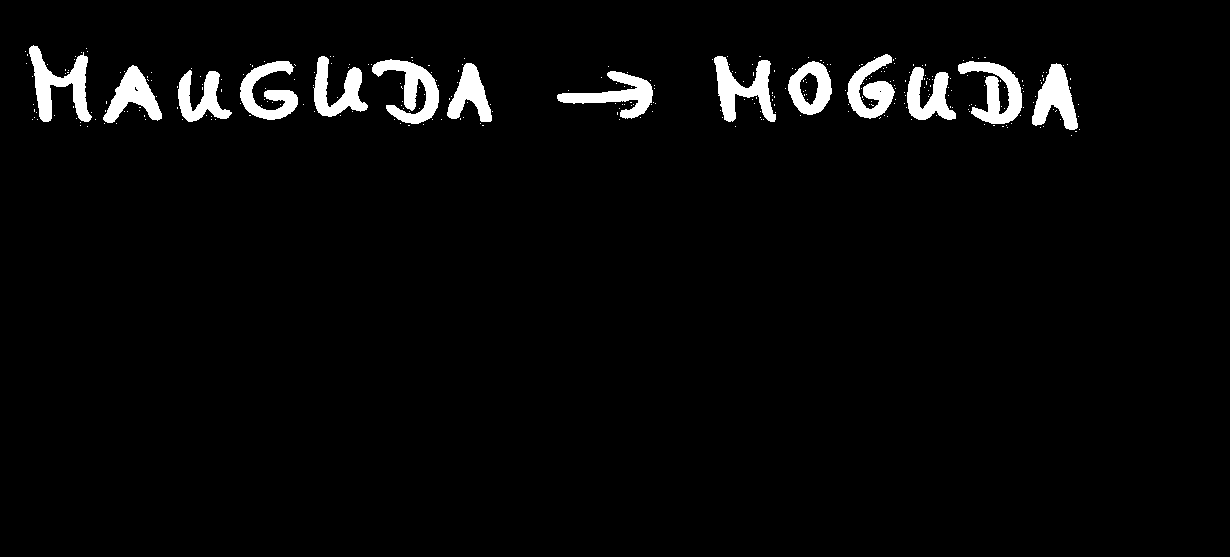 MAUGUDA → MOGUDA